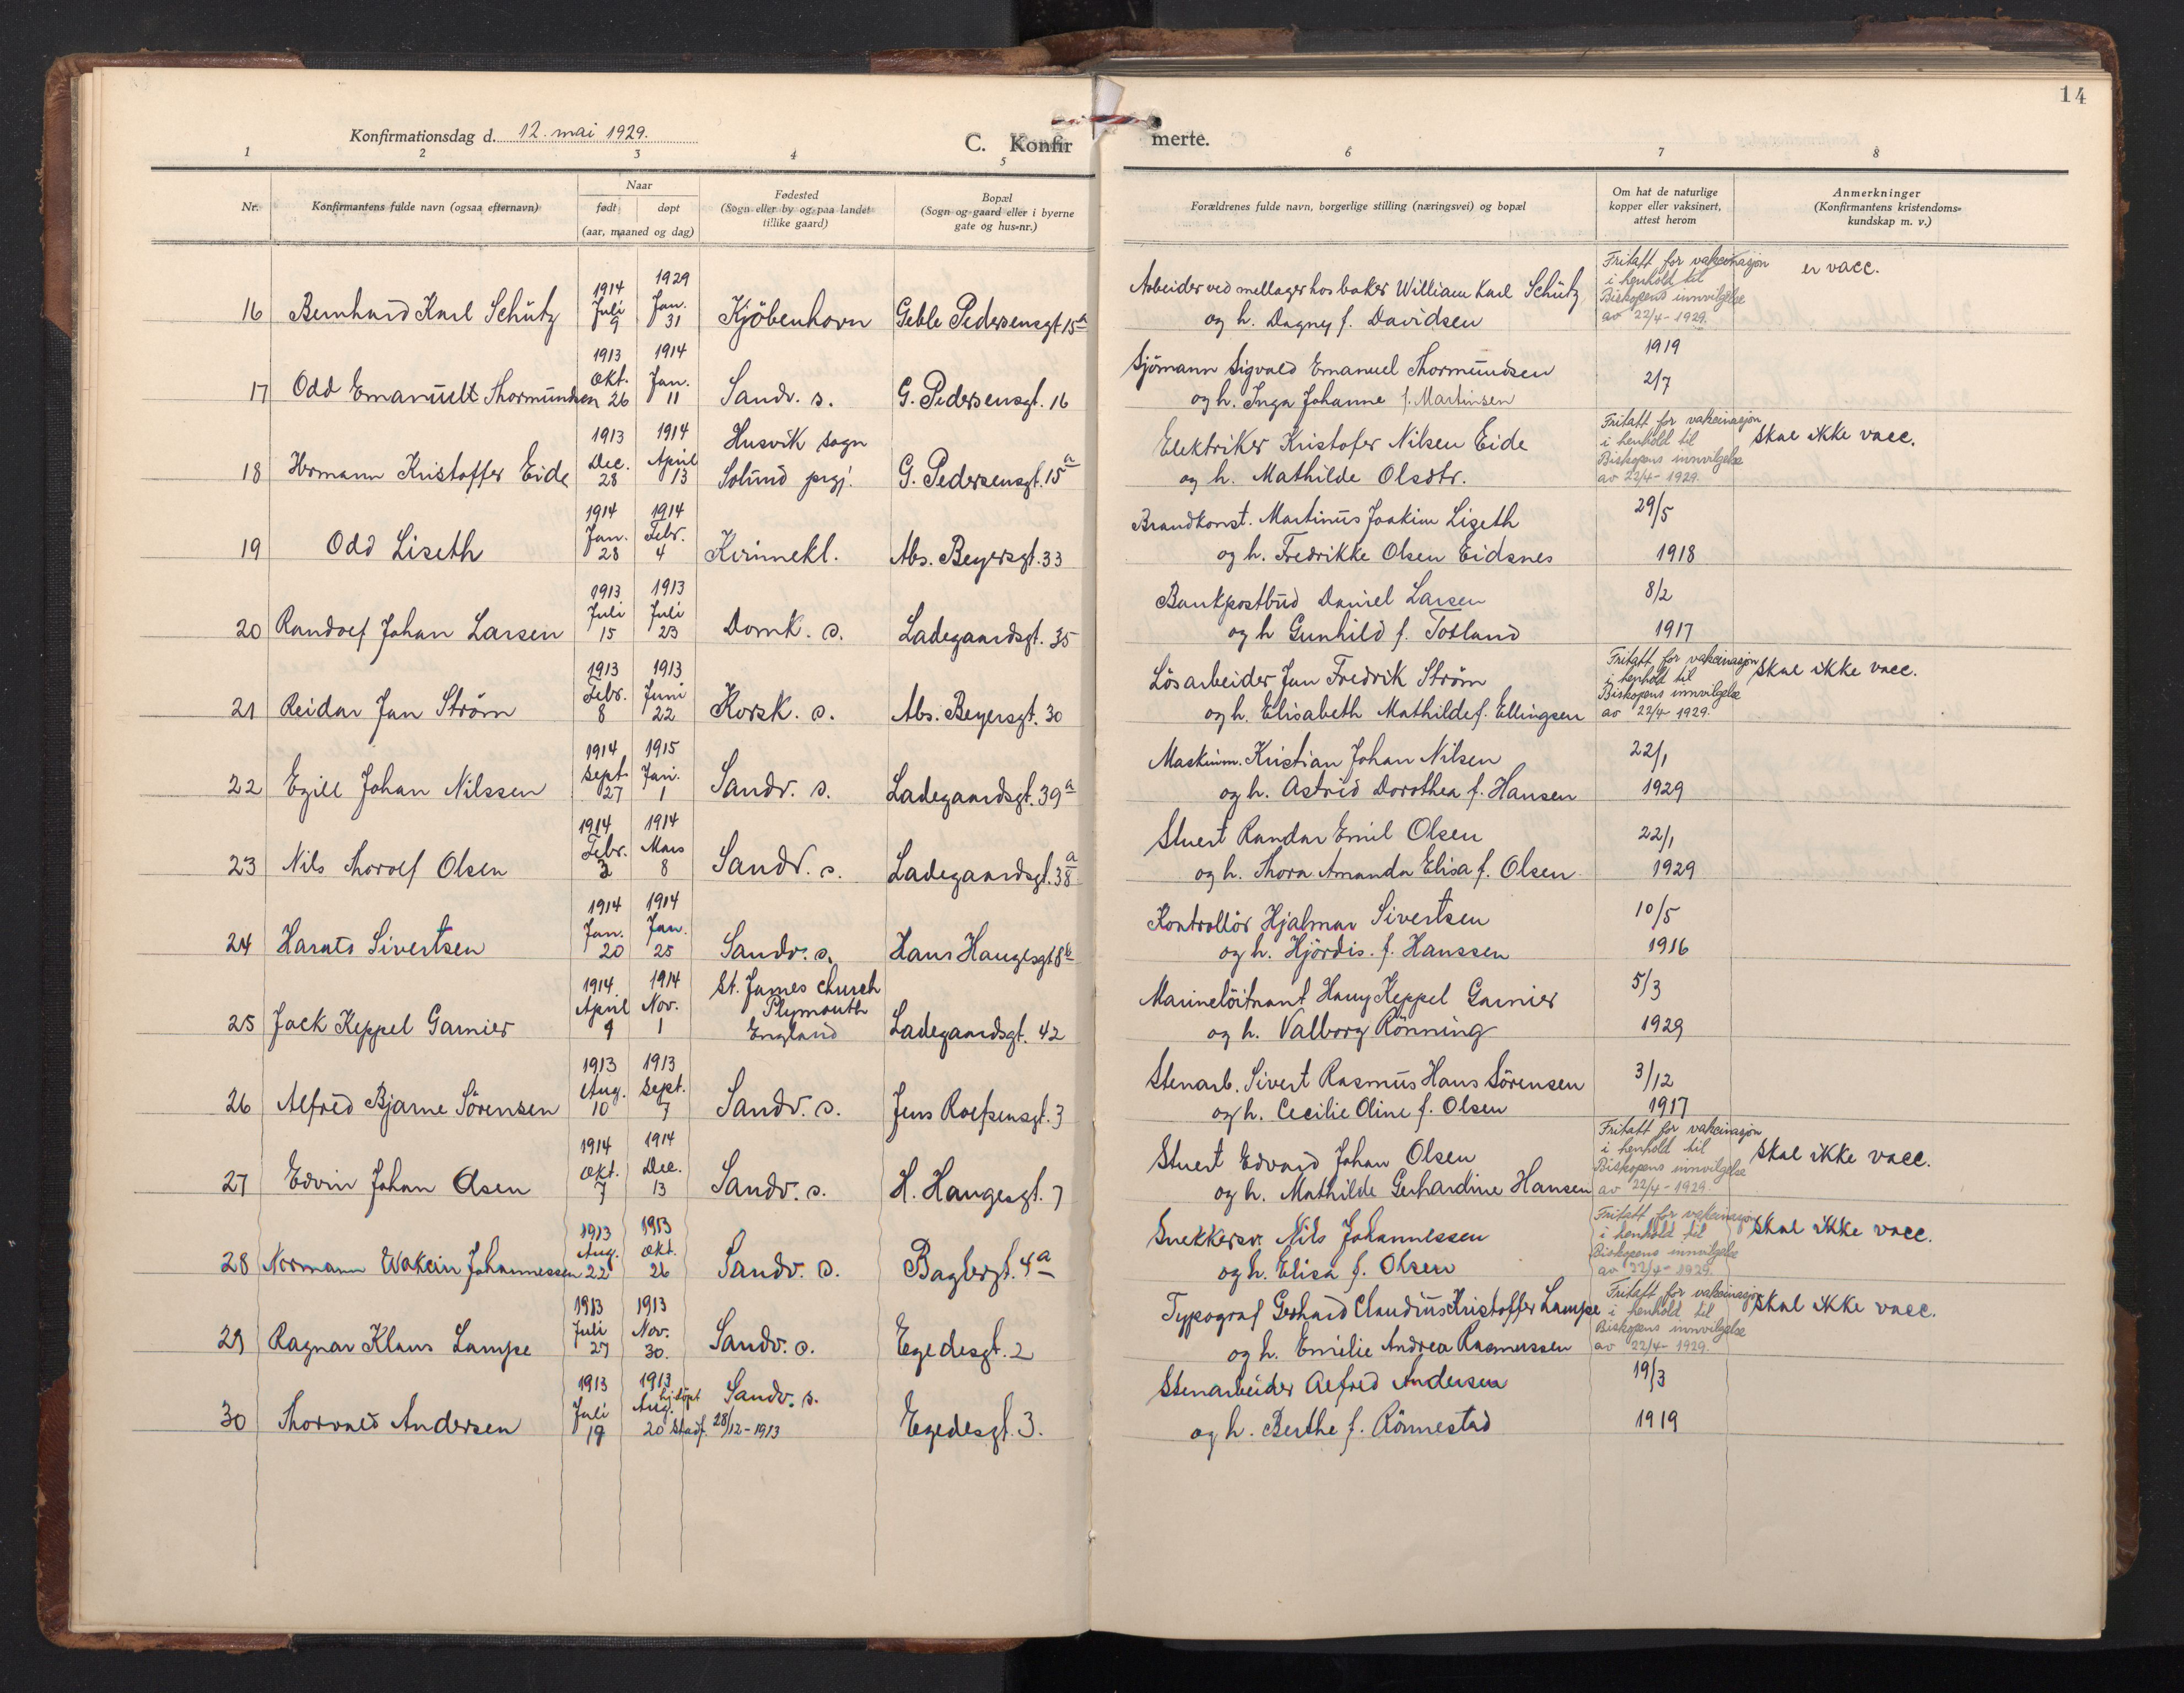 14
Konfirmationsdag d. 12. mai 1929.
C. Konfirmerte.
1 2 3 4 5 6 7 8
Nr.
Konfirmantens fulde navn (ogsaa efternavn)
Naar
født døpt
(aar, maaned og dag)
Fødested
(Sogn eller by og paa landet
tillike gaard)
Bopæl
(Sogn og gaard eller i byerne
gate og hus-nr.)
Forældrenes fulde navn, borgerlige stilling (næringsvei) og bopæl
Om hat de naturlige
kopper eller vaksinert,
attest herom
Anmerkninger
(Konfirmantens kristendoms-
kundskap m. v.)
16 Bernhard Karl Schütz 1914 Juli 9 1929 Jan. 31 Kjöbenhavn Geble Pedersensgt. 15a
Arbeider ved mellager hos baker William Karl Schütz
og h. Dagny f. Davidsen
Fritatt for vakcinasjon
i henhold til
Biskopens innvilgelse
av 22/4-1929.
er vacc.
17 Odd Emanuell Thormundsen 1913 Okt. 26 1914 Jan. 11 Sandv. s. G. Pedersensgt. 16
Sjömann Sigvald Emanuel Thormundsen
og h. Inga Johanne f. Martinsen
1919
2/7
18 Hermann Kristoffer Eide 1913 Dec. 28 1914 April 13 Husvik sogn
Solund prgj. G. Pedersensgt. 15a
Elektriker Kristofer Nilsen Eide
og h. Mathilde Olsdtr.
Fritatt for vakcinasjon
i henhold til
Biskopens innvilgelse
av 22/4-1929.
Skal ikke vacc.
19 Odd Liseth 1914 Jan. 28 1914 Febr. 4 Kvinnekl. Abs. Beyersgt. 33
Brandkonst. Martinus Joakim Liseth
og h. Fredrikke Olsen Eidsnes
29/5
1918
20 Randolf Johan Larsen 1913 Juli 15 1913 Juli 23 Domk. s. Ladegaardsgt. 35
Bankpostbud Daniel Larsen
og h Gunhild f. Totland
8/2
1917
21 Reidar Jan Ström 1913 Febr. 8 1913 Juni 22 Korsk. s. Abs. Beyersgt. 30
Lösarbeider Jan Fredrik Ström
og h. Elisabeth Mathilde f. Ellingsen
Fritatt for vakcinasjon
i henhold til
Biskopens innvilgelse
av 22/4 1929.
Skal ikke vacc.
22 Egill Johan Nilssen 1914 Sept. 27 1915 Jan. 1 Sandv. s. Ladegaardsgt. 39a
Maskinm. Kristian Johan Nilsen
og h. Astrid Dorothea f. Hansen
22/1
1929
23 Nils Thorolf Olsen 1914 Febr. 3 1914 Mars 8 Sandv. s. Ladegaardsgt. 38a
Stuert Randar Emil Olsen
og h. Thora Amanda Elisa f. Olsen
22/1
1929
24 Harald Sivertsen 1914 Jan. 20 1914 Jan. 25 Sandv. s. Hans Haugesgt. 8b
Kontrollör Hjalmar Sivertsen
og h. Hjördis. f. Hanssen
10/5
1916
25 Jack Keppel Garnier 1914 April 9 1914 Nov. 1 St. James church
Plymouth
England Ladegaardsgt. 42
Marinelöitnant Harry Keppel Garnier
og h. Valborg Rönning
5/3
1929
26 Alfred Bjarne Sörensen 1913 Aug. 10 1913 Sept. 7 Sandv. s. Jens Rolfsensgt. 3
Stenarb. Sivert Rasmus Hans Sörensen
og h. Cecilie Oline f. Olsen
3/12
1917
27 Edvin Johan Olsen 1914 Okt. 7 1914 Dec. 13 Sandv. s. H. Haugesgt. 7
Stuert Edvard Johan Olsen
og h. Mathilde Gerhardine Hansen
Fritatt for vakcinasjon
i henhold til
Biskopens innvilgelse
av 22/4-1929.
Skal ikke vacc.
28 Normann Wakein Johannessen 1913 Aug. 22 1913 Okt. 26 Sandv. s. Baglergt. 4a
Snekkersv. Nils Johannessen
og h. Elisa f. Olsen
Fritatt for vakcinasjon
i henhold til
Biskopens innvilgelse
av 22/4-1929.
Skal ikke vacc.
29 Ragnar Klaus Lampe 1913 Juli 27 1913 Nov. 30. Sandv. s. Egedesgt. 2
Typograf Gerhard Claudius Kristoffer Lampe
og h. Emilie Andrea Rasmussen
Fritatt for vakcinasjon
i henhold til
Biskopens innvilgelse
av 22/4-1929.
Skal ikke vacc.
30 Thorvald Andersen 1913 Juli 19 1913 Aug. 20 hjdöpt stadf. 28/12-1913 Sandv. s. Egedesgt. 3.
Stenarbeider Alfred Andersen
og h. Berthe f. Rönnestad
19/3
1919